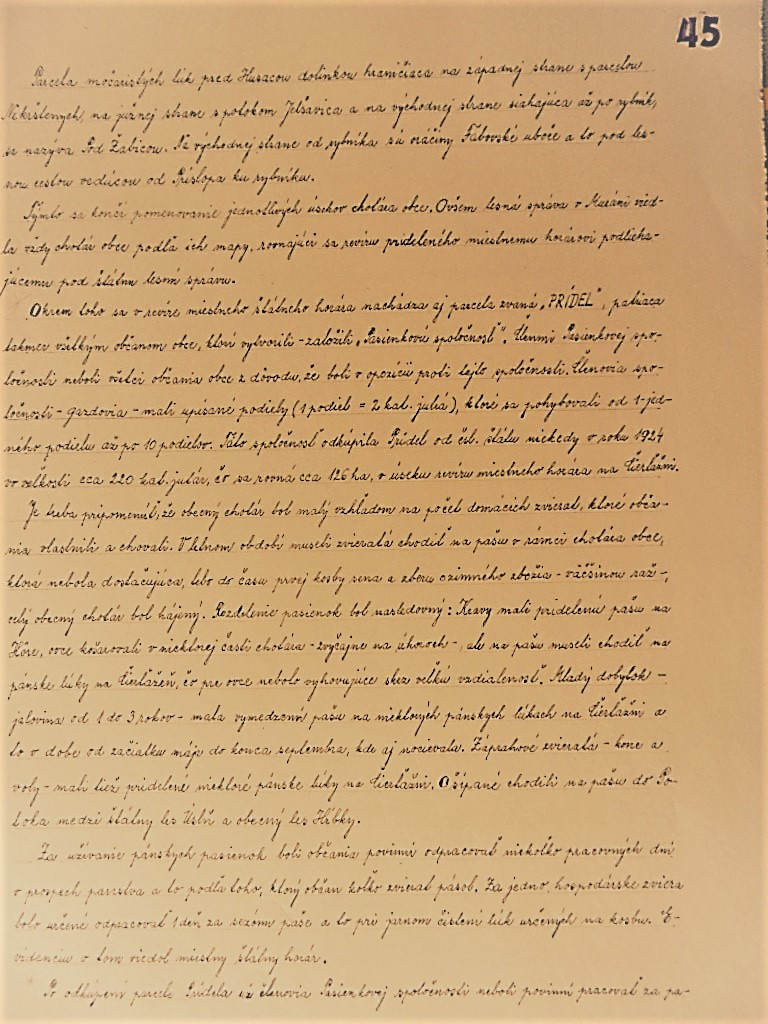 45
Parcela močaristých lúk pred Husacou dolinkou hraničiaca na západnej strane s parcelou
Nekrštených, na južnej strane s potokom Jelšavica a na východnej strane siahajúca až po rybník,
sa nazýva Pod Žabicou. Na východnej strane od rybníka sú oráčiny Fabovské uboče a to pod les-
nou cestou vedúcou od Príslopa ku rybníku.
Týmto sa končí pomenovanie jednotlivých úsekov chotára obce. Ovšem lesná správa v Muráni vied-
la vždy chotár obce podľa ich mapy, rovnajúci sa revíru prideleného miestnemu horárovi podlieha-
júcemu pod štátnu lesnú správu.
Okrem toho sa v revíre miestneho štátneho horára nachádza aj parcela zvaná „PRÍDEL", patriaca
takmer všetkým občanom obce, ktorí vytvorili - založili „Pasienkovú spoločnosť". Členmi Pasienkovej spo-
ločnosti neboli všetci občania obce z dôvodu, že boli v opozícii proti tejto spoločnosti. Členovia spo-
ločnosti - gazdovia - mali upísané podiely (1 podiel = 2 kat. jutrá), ktoré sa pohybovali od 1-jed-
ného podielu až po 10 podielov. Táto spoločnosť odkúpila Prídel od čsl. štátu niekedy v roku 1924
vo veľkosti cca 220 kat. jutár, čo sa rovná cca 126 ha, v úseku revíru miestneho horára na Čierťažni.
Je treba pripomenúť, že obecný chotár bol malý vzhľadom na počet domácich zvierat, ktoré obča-
nia vlastnili a chovali. V letnom období museli zvieratá chodiť na pašu v rámci chotára obce,
ktorá nebola dostačujúca, lebo do času prvej kosby sena a zberu ozimného zbožia - väčšinou raž -,
celý obecný chotár bol hájený. Rozdelenie pasienok bol nasledovný: Kravy mali pridelenú pašu na
Hôre, ovce košarovali v niektorej časti chotára - zvyčajne na úhoroch -, ale na pašu museli chodiť na
pánske lúky na Čierťažeň, čo pre ovce nebolo vyhovujúce skrz veľkú vzdialenosť. Mladý dobytok -
jalovina od 1 do 3 rokov - mala vymedzenú pašu na niektorých pánskych lúkach na Čierťažni a
to v dobe od začiatku mája do konca septembra, kde aj nocievala. Záprahové zvieratá - kone a
voly - mali tiež pridelené niektoré pánske lúky na Čierťažni. Ošípané chodili na pašu do Po-
toka medzi štátny les Úsln a obecný les Hlbky.
Za užívanie pánskych pasienok boli občania povinní odpracovať niekoľko pracovných dní
v prospech panstva a to podľa toho, ktorý občan koľko zvierat pásol. Za jedno hospodárske zviera
bolo určené odpracovať 1 deň za sezónu paše a to pri jarnom čistení lúk určených na kosbu. E-
videnciu o tom viedol miestny štátny horár.
Po odkúpení parcele Prídela už členovia Pasienkovej spoločnosti neboli povinní pracovať za pa-